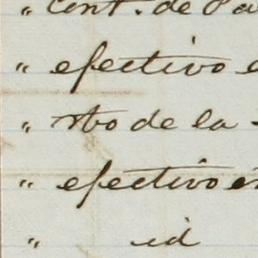 " Cont. de Pa
" efectivo e
" rbo de la
" efectivo en
" id